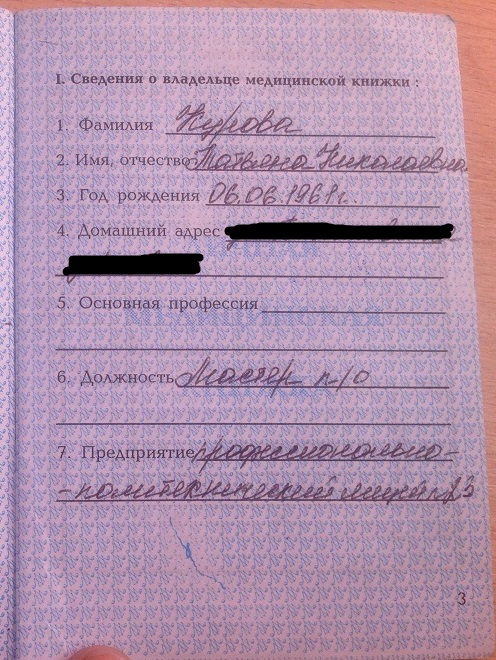 I. Сведения о владельце медицинской книжки :
1. Фамилия Курова
2. Имя, отчество Татьяна Николаевна
3. Год рождения 06.06.1961г.
4. Домашний адрес
5. Основная профессия
6. Должность Мастер п/о
7. Предприятие профессионально-
-политехнический лицей
3